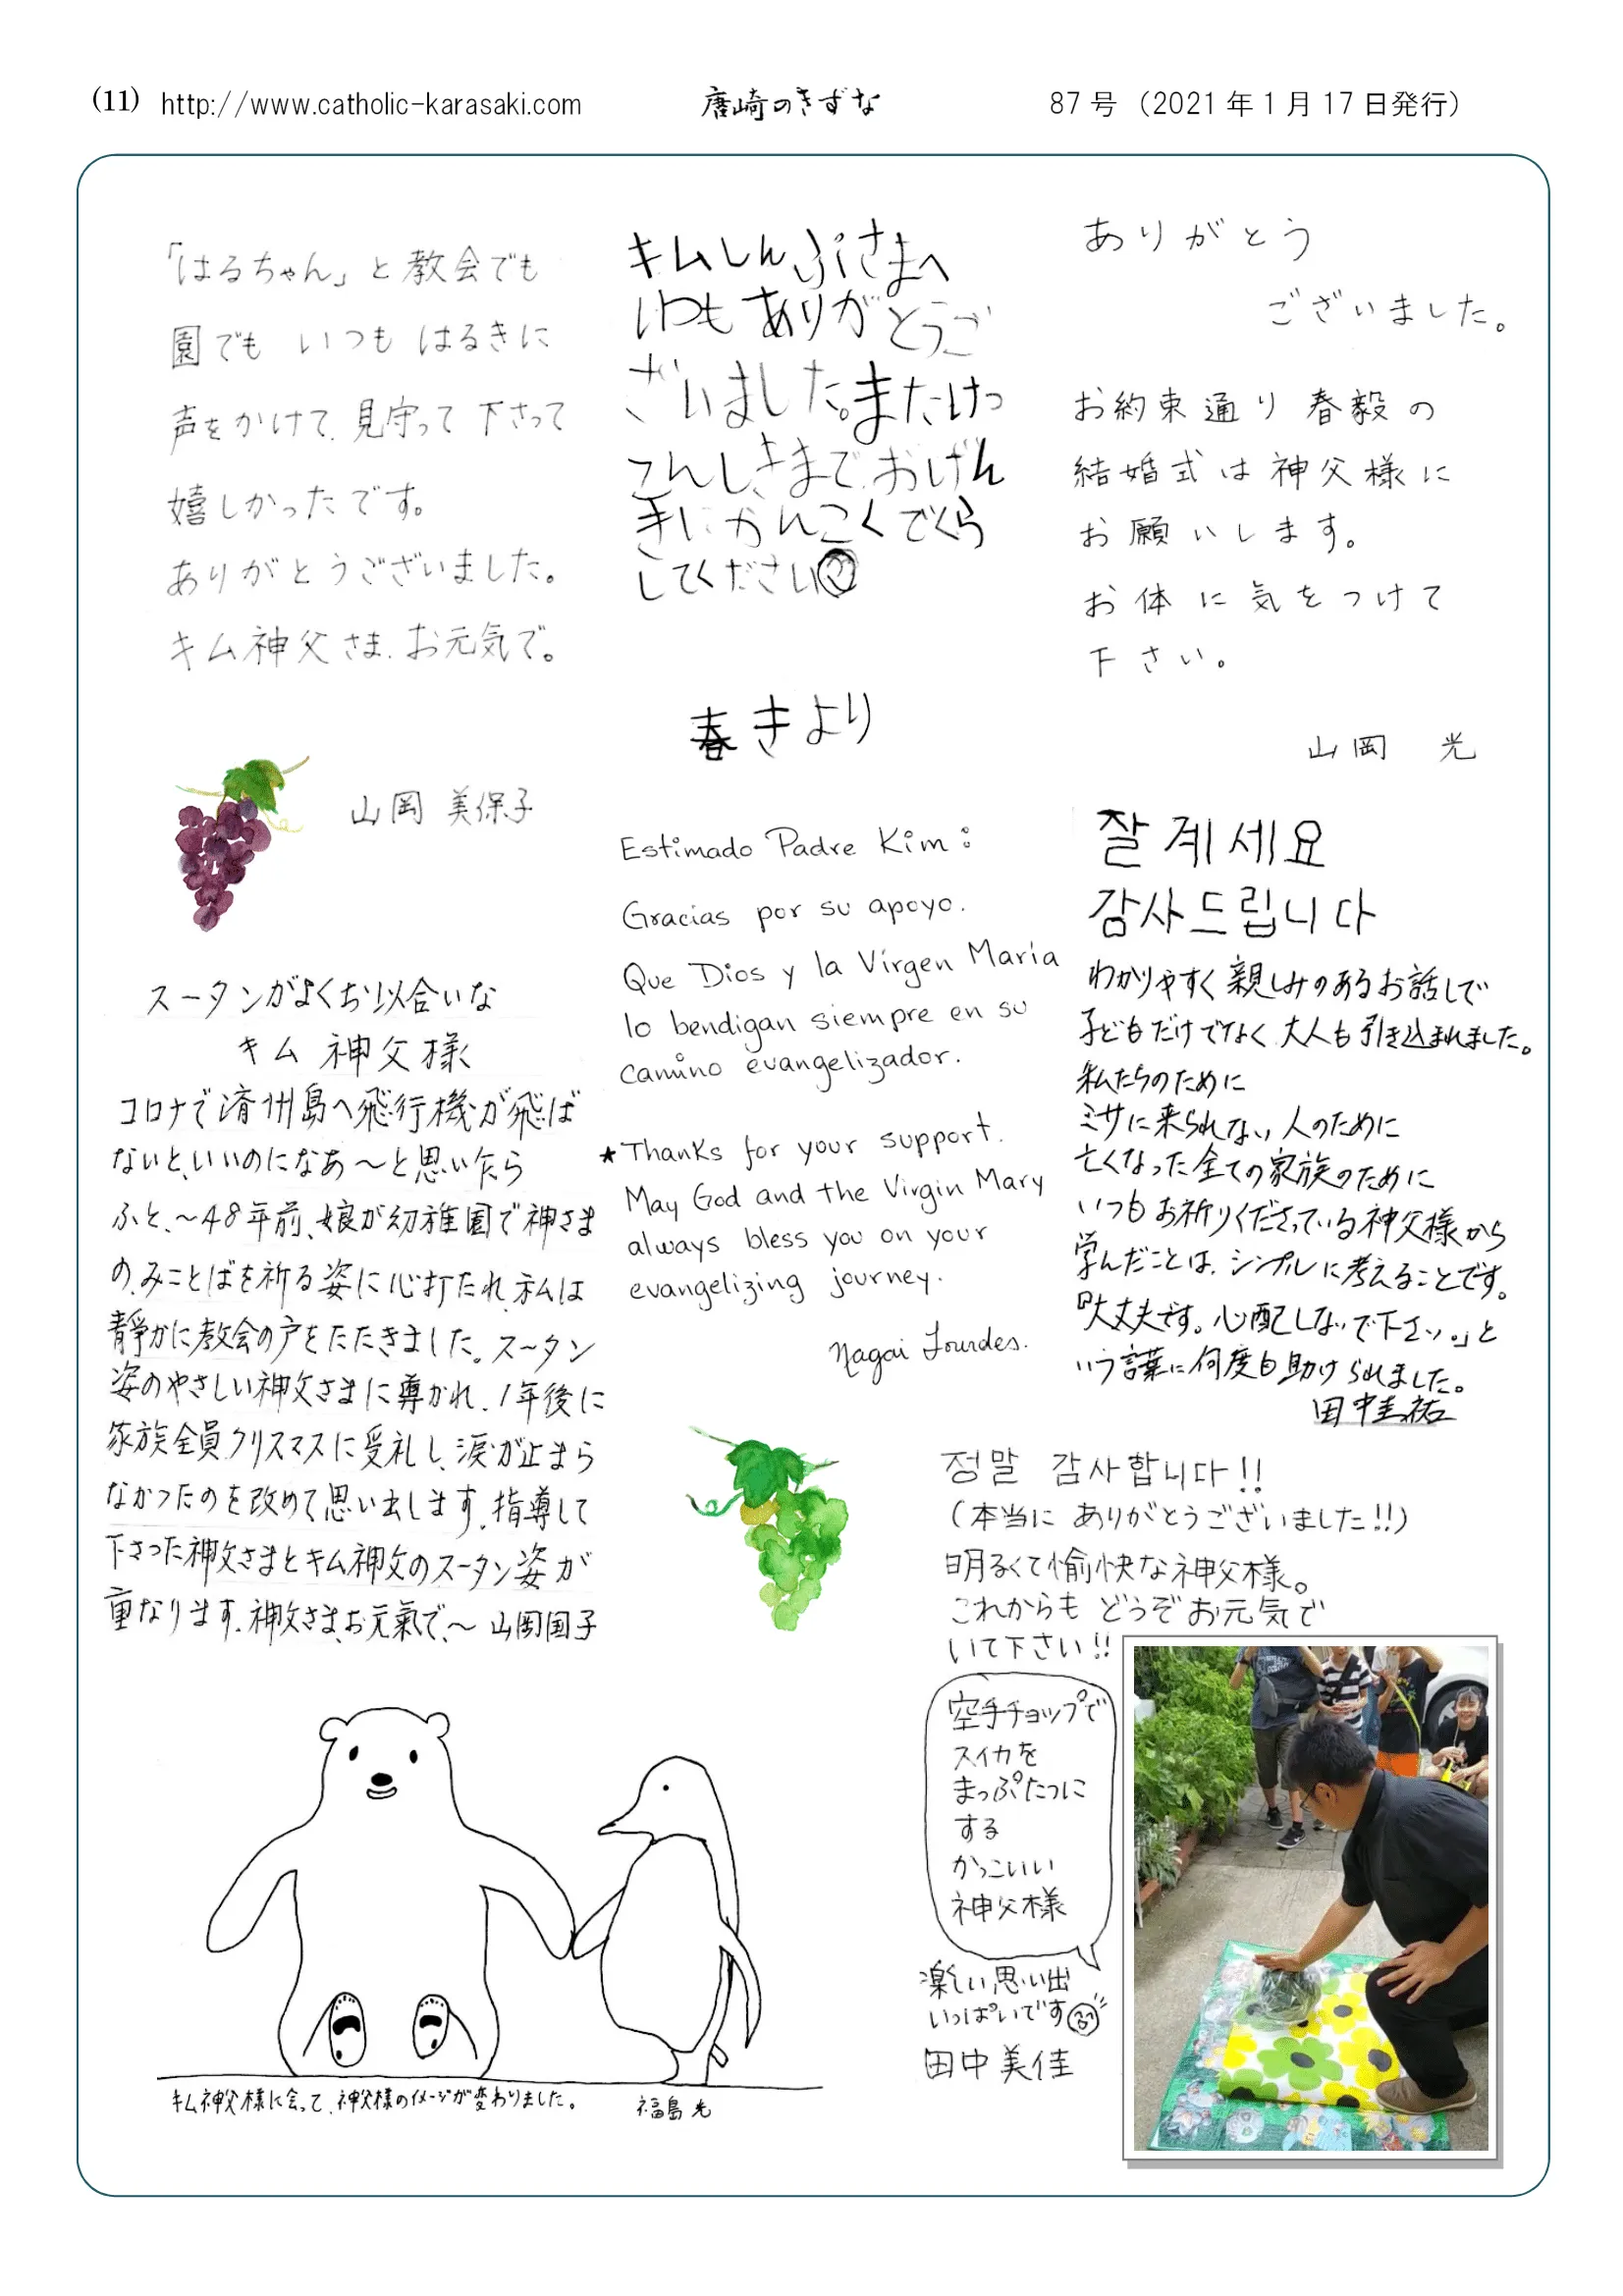 (11) http://www.catholic-karasaki.com 唐崎のきずな 87 号 （2021 年 1 月 17 日発行）
「はるちゃん」と教会でも
園でも いつも はるきに
声をかけて、見守って下さって
嬉しかったです。
ありがとうございました。
キム神父さま、お元気で。
山岡 美保子
キムしんぷさまへ
いつもありがとうご
ざいました。またけっ
こんしきまでおげん
きにかんこくでくら
してください
春きより
ありがとう
ございました。
お約束通り 春毅の
結婚式は神父様に
お願いします。
お体に気をつけて
下さい。
山岡 光
スータンがよくお似合いな
キム 神父様
コロナで済州島へ飛行機が飛ば
ないと、いいのになあ〜と思い乍ら
ふと、〜48年前、娘が幼稚園で神さま
の、みことばを祈る姿に心打たれ、私は
静かに教会の戸をたたきました。スータン
姿のやさしい神父さまに導かれ、1年後に
家族全員クリスマスに受礼し、涙が止まら
なかったのを改めて思い出します。指導して
下さった神父さまとキム神父のスータン姿が
重なります。神父さま、お元氣で、〜 山岡国子
Estimado Padre Kim:
Gracias por su apoyo.
Que Dios y la Virgen María
lo bendigan siempre en su
camino evangelizador.
★Thanks for your support.
May God and the Virgin Mary
always bless you on your
evangelizing journey.
Nagai Lourdes.
잘 계세요
감사드립니다
わかりやすく親しみのあるお話しで
子どもだけでなく、大人も引き込まれました。
私たちのために
ミサに来られない人のために
亡くなった全ての家族のために
いつもお祈りくださっている神父様から
学んだことは、シンプルに考えることです。
『大丈夫です。心配しないで下さい。』と
いう言葉に何度も助けられました。
田中圭祐
정말 감사합니다!!
(本当に ありがとうございました!!)
明るくて愉快な神父様。
これからも どうぞお元気で
いて下さい!!
空手チョップで
スイカを
まっぷたつに
する
かっこいい
神父様
楽しい思い出
いっぱいです
田中美佳
キム神父様に会って、神父様のイメージが変わりました。 福島 光